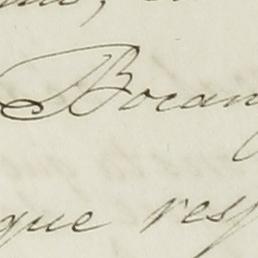 Bocan
que resp